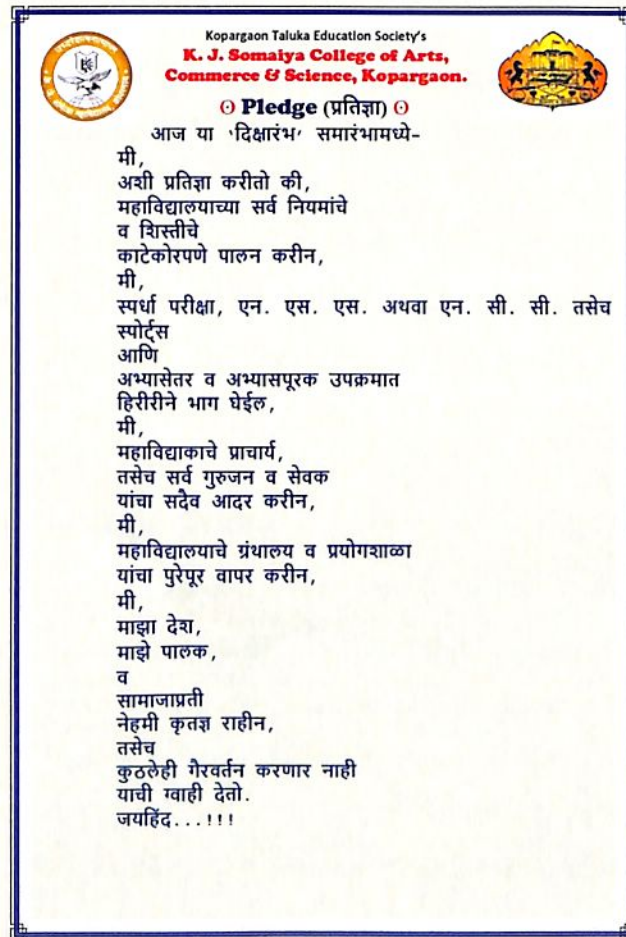 Kopargaon Taluka Education Society's
K. J. Somaiya College of Arts,
Commerce & Science, Kopargaon.
Pledge (प्रतिज्ञा)
आज या 'दिक्षारंभ' समारंभामध्ये-
मी,
अशी प्रतिज्ञा करीतो की,
महाविद्यालयाच्या सर्व नियमांचे
व शिस्तीचे
काटेकोरपणे पालन करीन,
मी,
स्पर्धा परीक्षा, एन. एस. एस. अथवा एन. सी. सी. तसेच
स्पोर्ट्स
आणि
अभ्यासेतर व अभ्यासपूरक उपक्रमात
हिरीरीने भाग घेईल,
मी,
महाविद्याकाचे प्राचार्य,
तसेच सर्व गुरुजन व सेवक
यांचा सदैव आदर करीन,
मी,
महाविद्यालयाचे ग्रंथालय व प्रयोगशाळा
यांचा पुरेपूर वापर करीन,
मी,
माझा देश,
माझे पालक,
व
सामाजाप्रती
नेहमी कृतज्ञ राहीन,
तसेच
कुठलेही गैरवर्तन करणार नाही
याची ग्वाही देतो.
जयहिंद...!!!